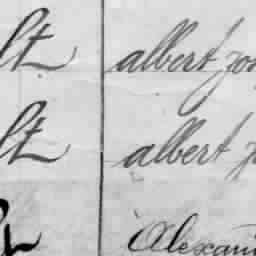 lt albert jos
lt albert j
Alexan